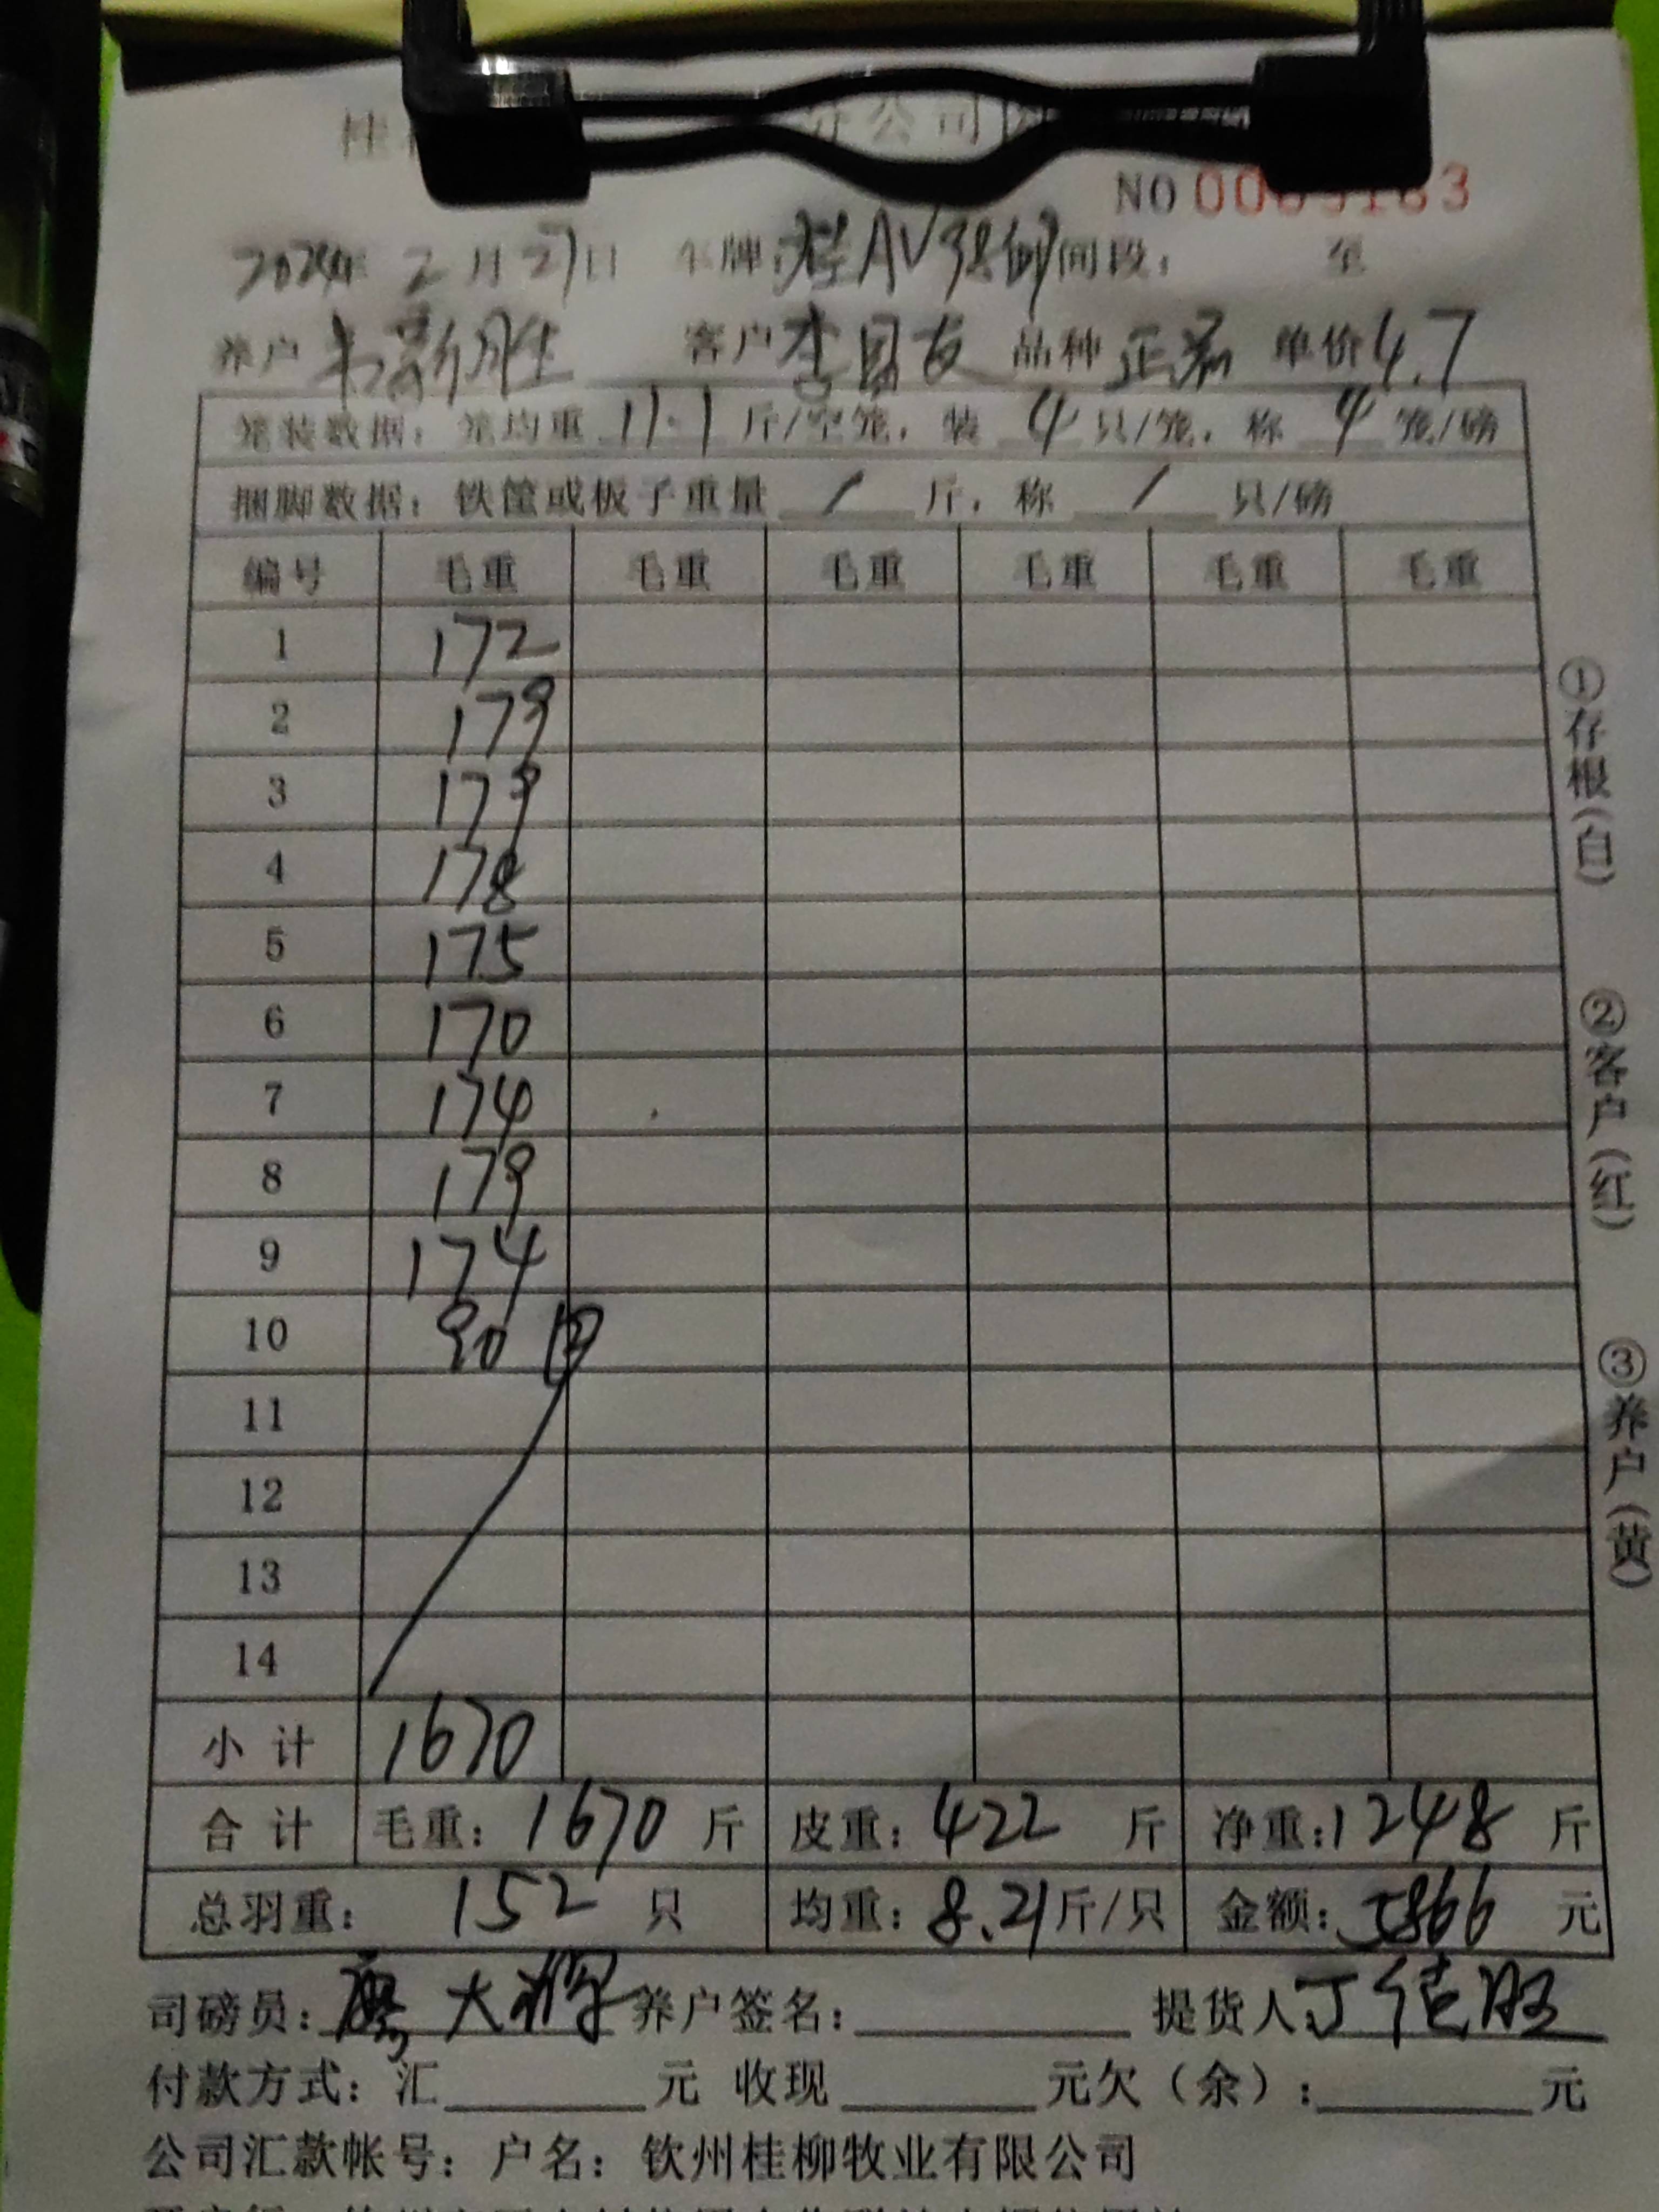 桂 分公司
NO 00
2024年 2月27日 车牌:桂AV38 时间段: 至
养户 韦新胜 客户 李国友 品种 正番 单价 4.7
笼装数据: 笼均重 11.1 斤/空笼, 装 4 只/笼, 称 4 笼/磅
捆脚数据: 铁筐或板子重量 / 斤, 称 / 只/磅
编号 毛重 毛重 毛重 毛重 毛重 毛重
1 172
2 179
3 179
4 178
5 175
6 170
7 174
8 179
9 174
10 90
11
12
13
14
小计 1670
合计 毛重: 1670 斤 皮重: 422 斤 净重: 1248 斤
总羽重: 152 只 均重: 8.21 斤/只 金额: 5866 元
司磅员: 大 养户签名: 提货人 丁
付款方式: 汇 元 收现 元欠(余): 元
公司汇款帐号: 户名: 钦州桂柳牧业有限公司
①存根(白)
②客户(红)
③养户(黄)